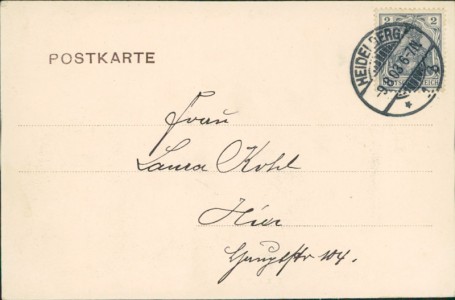 POSTKARTE
2 2
HEIDELBERG
9.8.03 6-7N
Frau
Laura Kohl
Hier
Hauptstr 104.